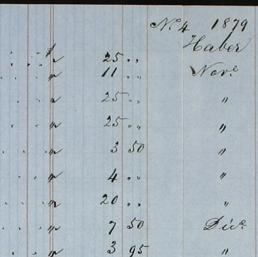 No. 4 1879
Haber
25 " Nov.e
11 "
25 " "
25 " "
3 50 "
4 " "
20 " "
7 50 Dic.e
3 95 "